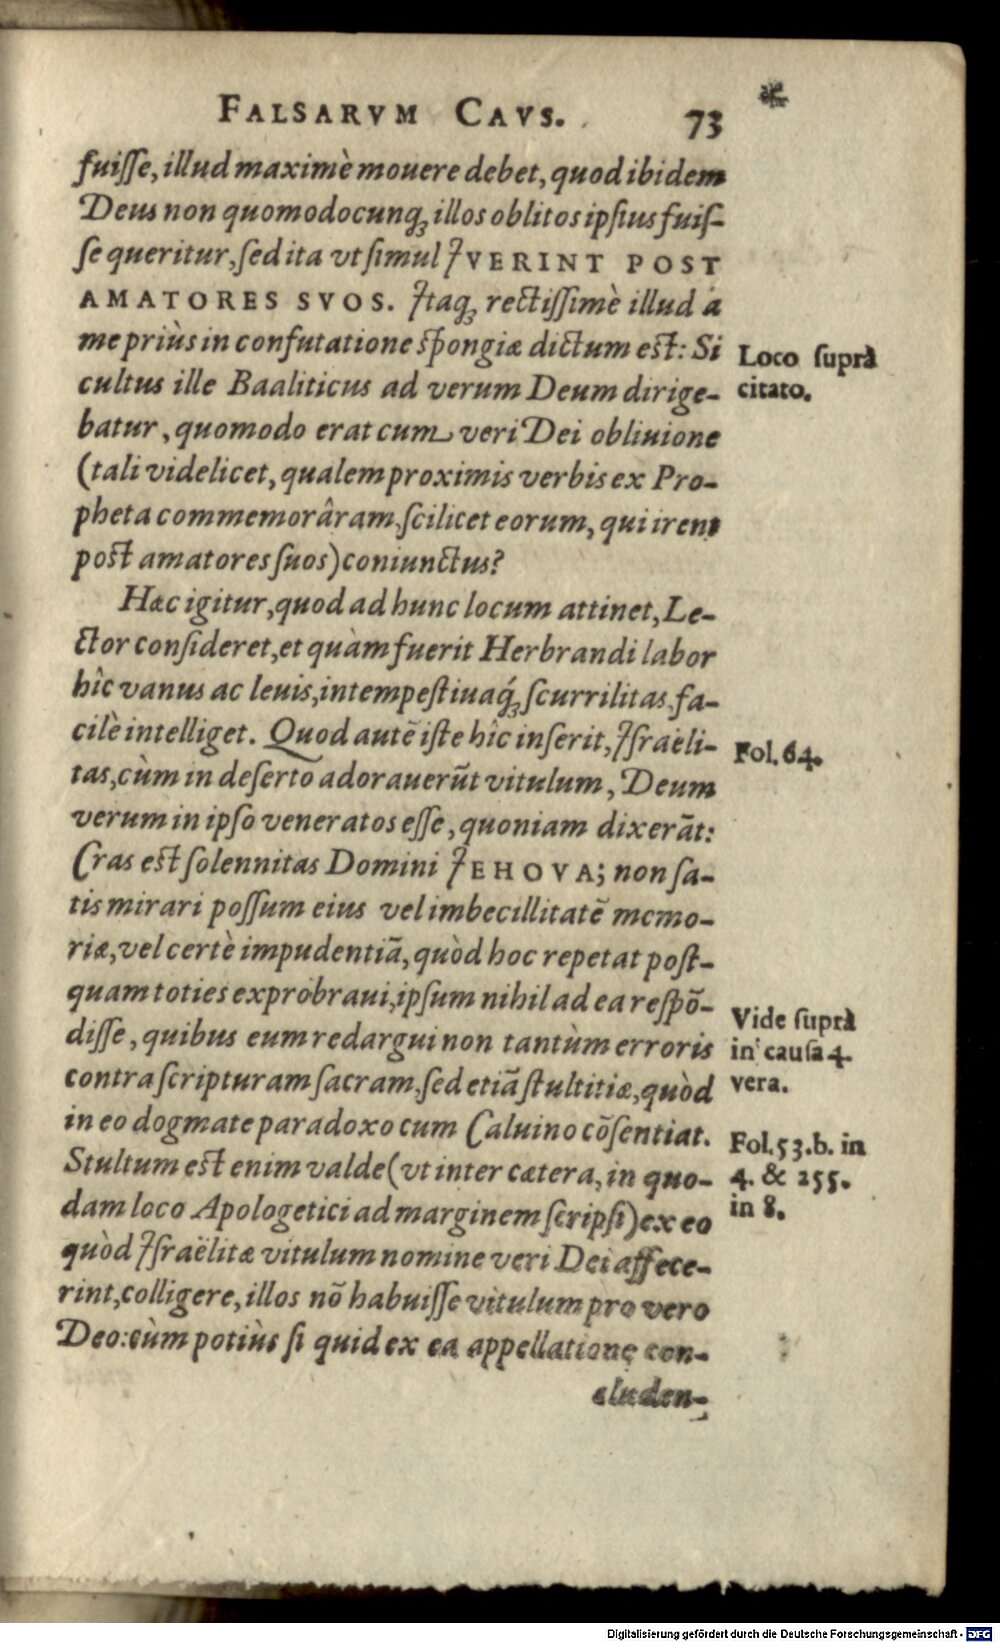 FALSARVM CAVS. 73
fuiſſe, illud maximè mouere debet, quod ibidem
Deus non quomodocunq; illos oblitos ipſius fuiſ-
ſe queritur, ſed ita vt ſimul IVERINT POST
AMATORES SVOS. Itaq; rectiſſimè illud à
me priùs in confutatione ſpongiæ dictum eſt: Si
cultus ille Baaliticus ad verum Deum dirige-
batur, quomodo erat cum veri Dei obliuione
(tali videlicet, qualem proximis verbis ex Pro-
pheta commemorâram, ſcilicet eorum, qui irent
poſt amatores ſuos) coniunctus?
Loco ſuprà
citato.
Hæc igitur, quod ad hunc locum attinet, Le-
ctor conſideret, et quàm fuerit Herbrandi labor
hîc vanus ac leuis, intempeſtiuaq́; ſcurrilitas, fa-
cilè intelliget. Quod autẽ iſte hîc inſerit, Iſraëli-
tas, cùm in deſerto adorauerũt vitulum, Deum
verum in ipſo veneratos eſſe, quoniam dixerãt:
Cras eſt ſolennitas Domini IEHOVA; non ſa-
tis mirari poſſum eius vel imbecillitatẽ memo-
riæ, vel certè impudentiã, quòd hoc repetat poſt-
quam toties exprobraui, ipſum nihil ad ea reſpõ-
diſſe, quibus eum redargui non tantùm erroris
contra ſcripturam ſacram, ſed etiã ſtultitiæ, quòd
in eo dogmate paradoxo cum Caluino cõſentiat.
Stultum eſt enim valde (vt inter cætera, in quo-
dam loco Apologetici ad marginem ſcripſi) ex eo
quòd Iſraëlitæ vitulum nomine veri Dei affece-
rint, colligere, illos nõ habuiſſe vitulum pro vero
Deo: cùm potiùs ſi quid ex ea appellatione con-
cluden-
Fol. 64.
Vide ſuprà
in cauſa 4.
vera.
Fol. 53. b. in
4. & 255.
in 8.
Digitalisierung gefördert durch die Deutsche Forschungsgemeinschaft - DFG